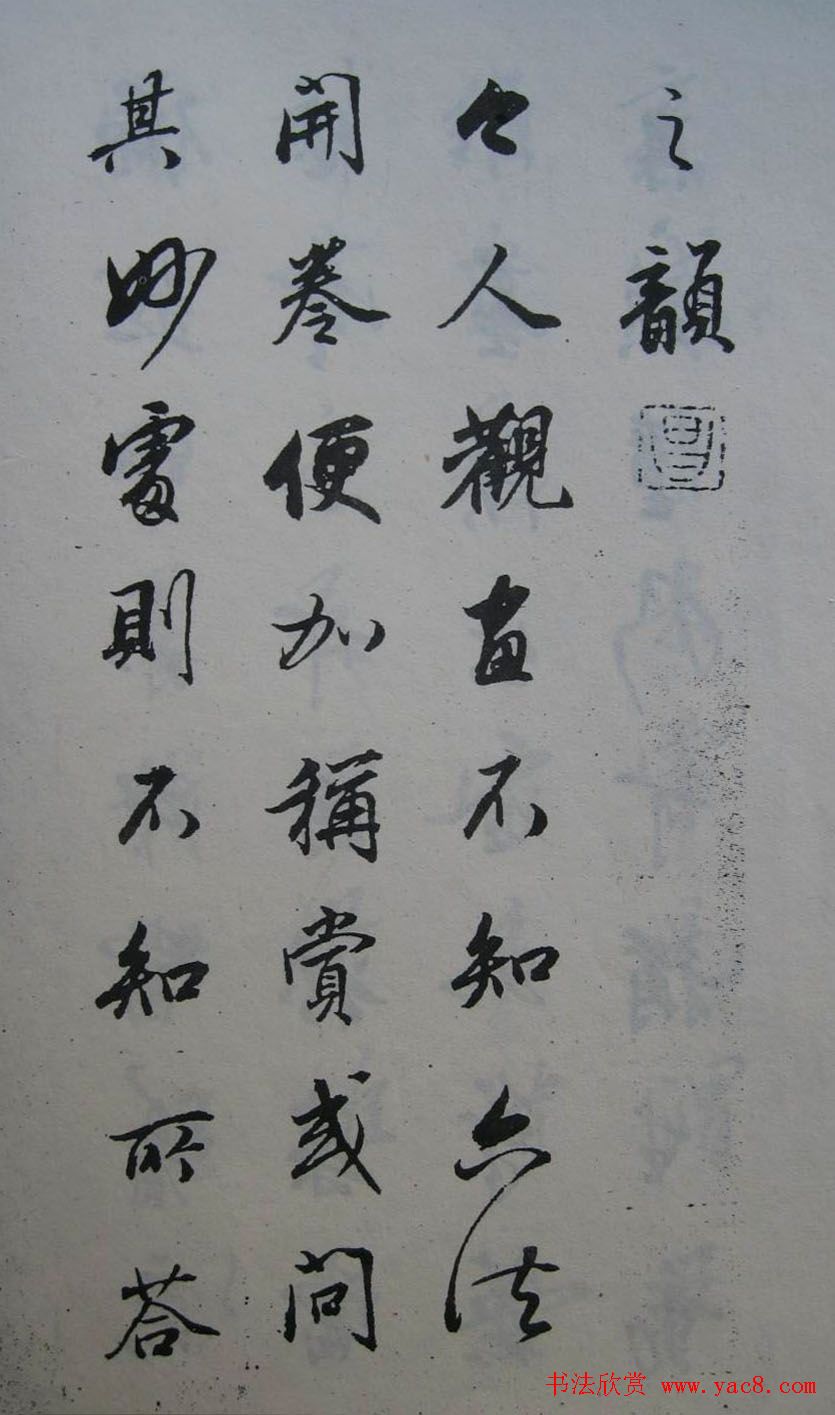 之韻
今人觀畫不知六法
開卷便加稱賞或問
其妙處則不知所荅
书法欣赏 www.yac8.com